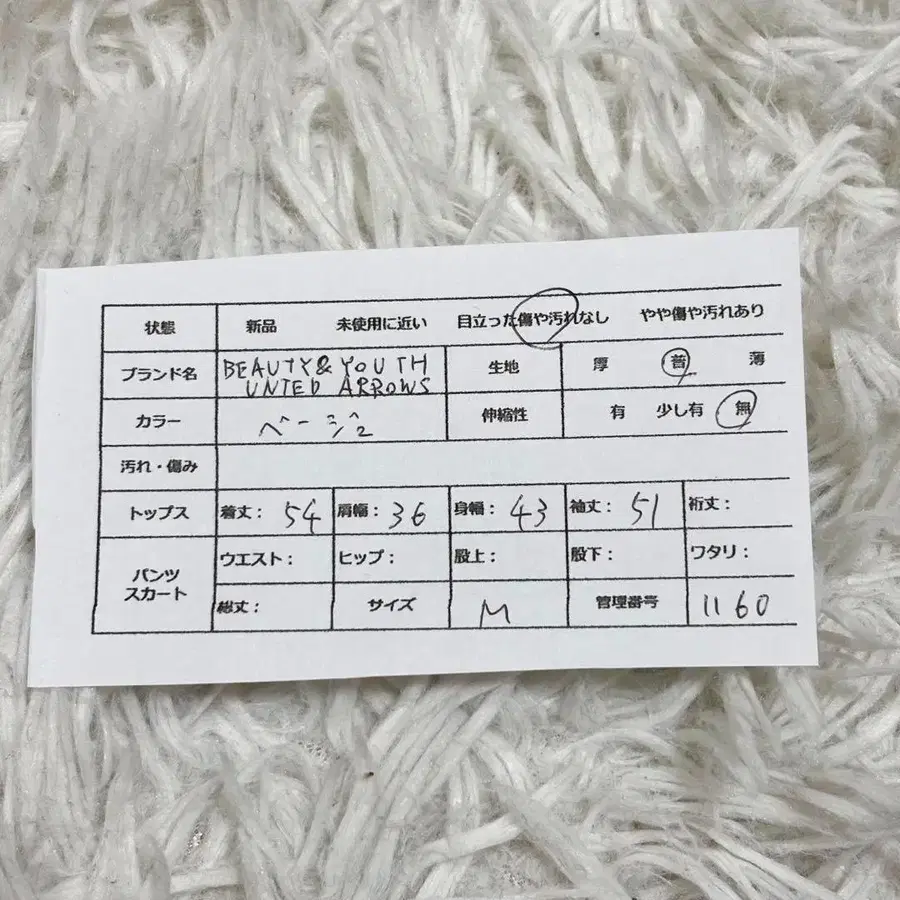 状態 新品 未使用に近い 目立った傷や汚れなし やや傷や汚れあり
ブランド名 BEAUTY&YOUTH UNTED ARROWS 生地 厚 普 薄
カラー ベージュ 伸縮性 有 少し有 無
汚れ・傷み
トップス 着丈: 54 肩幅: 36 身幅: 43 袖丈: 51 裄丈:
パンツ スカート ウエスト: ヒップ: 股上: 股下: ワタリ:
総丈: サイズ M 管理番号 1160